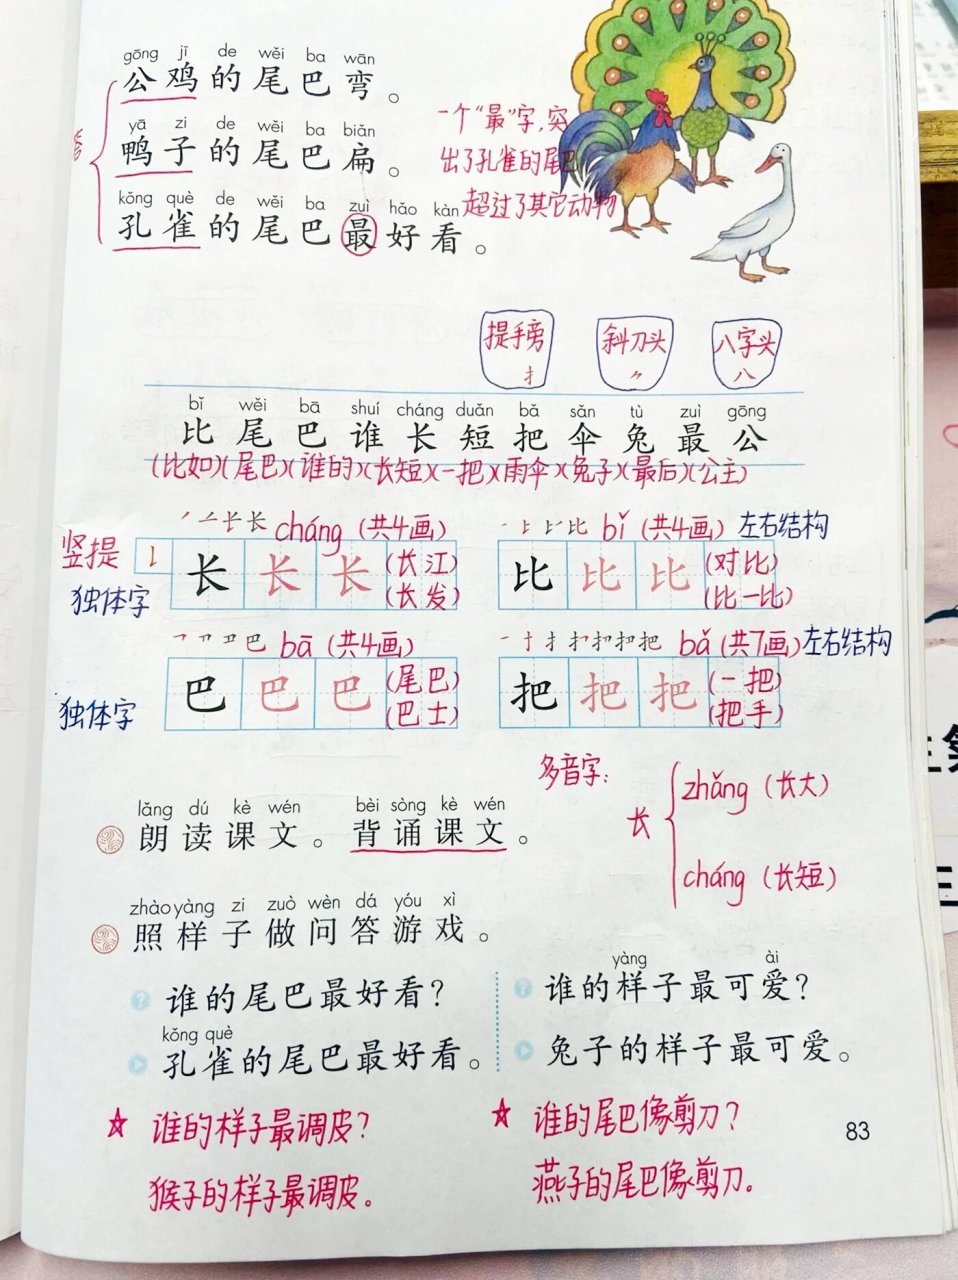 gōng jī de wěi ba wān
公鸡的尾巴弯。
yā zi de wěi ba biǎn
鸭子的尾巴扁。
kǒng què de wěi ba zuì hǎo kàn
孔雀的尾巴最好看。
一个“最”字,突
出了孔雀的尾巴
超过了其它动物
提手旁
扌
斜刀头
⺈
八字头
八
bǐ wěi bā shuí cháng duǎn bǎ sǎn tù zuì gōng
比尾巴谁长短把伞兔最公
(比如)(尾巴)(谁的)(长短)(一把)(雨伞)(兔子)(最后)(公主)
cháng (共4画)
竖提
长 长 长 (长江)
独体字
(长发)
bǐ (共4画) 左右结构
比 比 比 (对比)
(比一比)
bā (共4画)
巴 巴 巴 (尾巴)
独体字
(巴士)
bǎ (共7画) 左右结构
把 把 把 (一把)
(把手)
多音字:
长
zhǎng (长大)
cháng (长短)
lǎng dú kè wén bèi sòng kè wén
朗读课文。背诵课文。
zhào yàng zi zuò wèn dá yóu xì
照样子做问答游戏。
谁的尾巴最好看?
kǒng què
孔雀的尾巴最好看。
yàng ài
谁的样子最可爱?
兔子的样子最可爱。
☆ 谁的样子最调皮?
猴子的样子最调皮。
☆ 谁的尾巴像剪刀?
燕子的尾巴像剪刀。
83